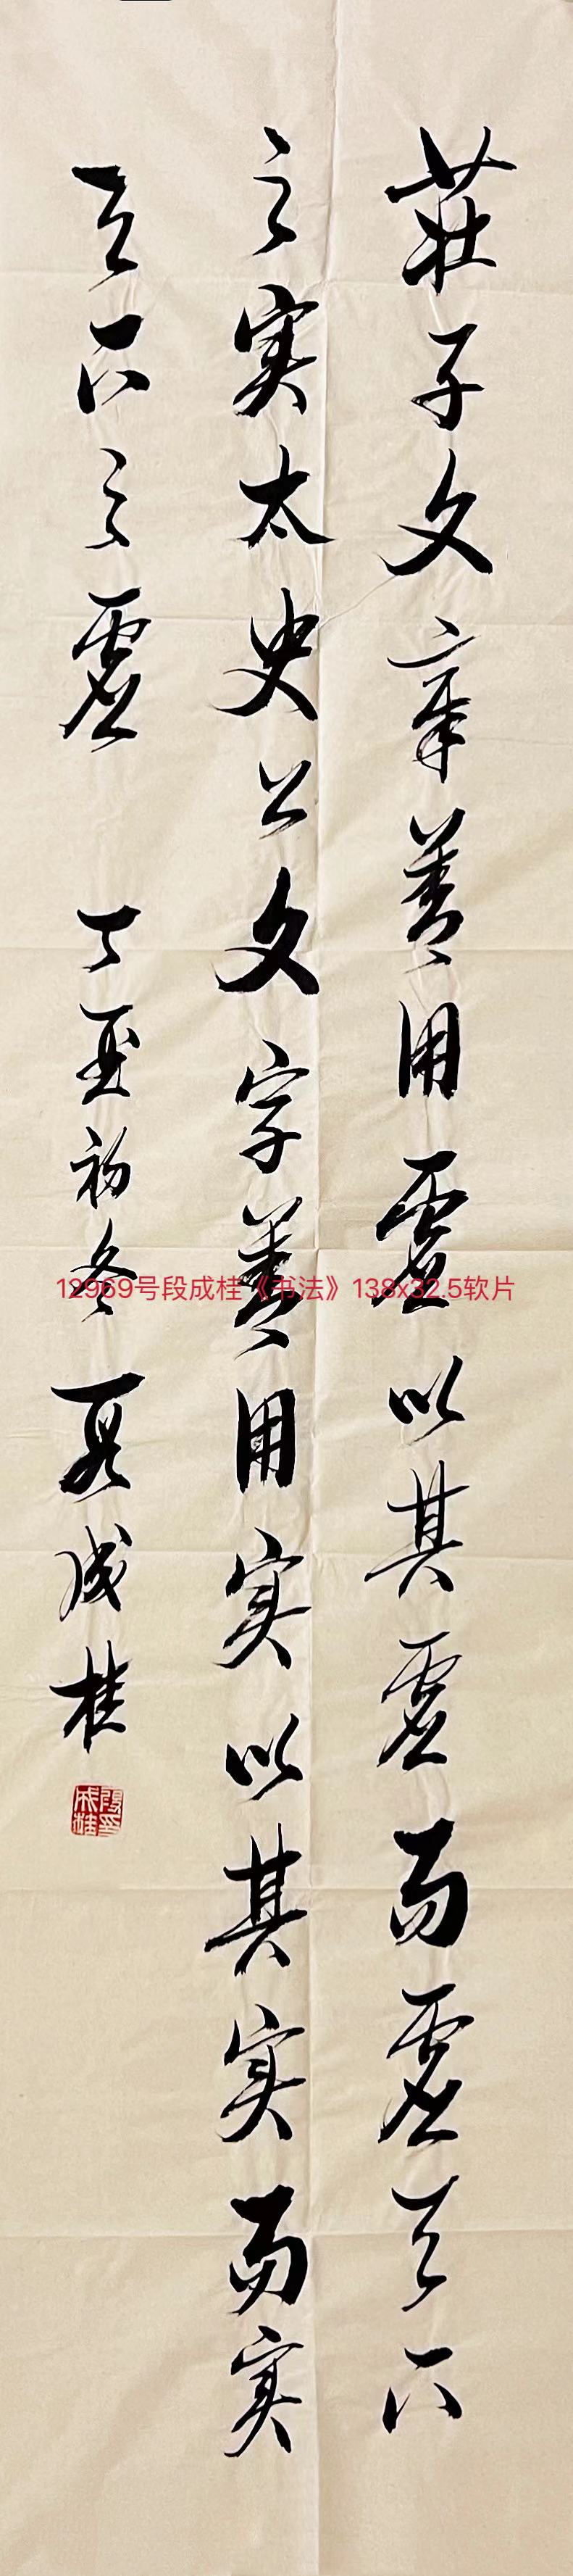 莊子文章善用虛以其虛而虛天下
之实太史公文字善用实以其实而实
天下之虛 丁丑初冬 段成桂
段成桂印
12969号段成桂《书法》138x32.5软片